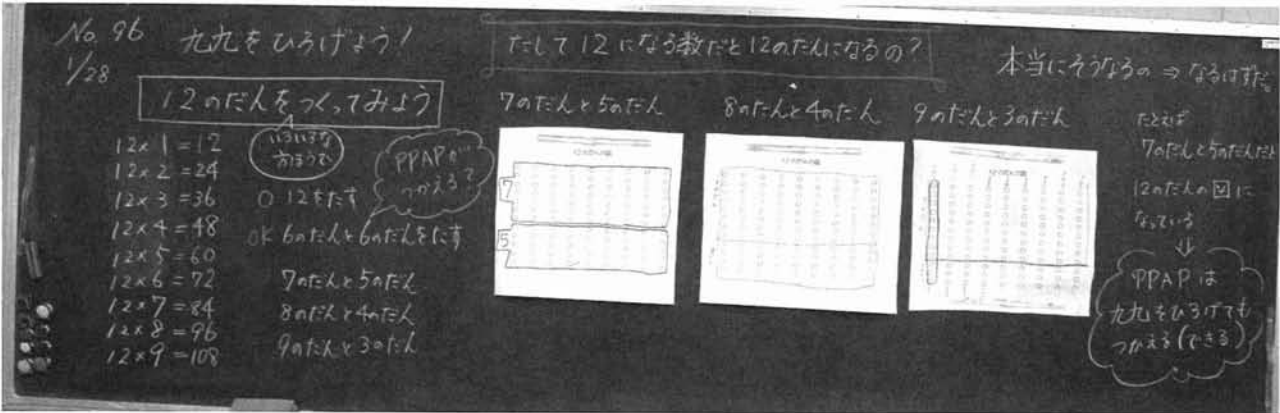 No. 96 九九をひろげよう！
1/28
12のだんをつくってみよう
いろいろな
方ほうで
12×1=12
12×2=24
12×3=36
12×4=48
12×5=60
12×6=72
12×7=84
12×8=96
12×9=108
PPAPが
つかえる？
○ 12をたす
OK 6のだんと6のだんをたす
7のだんと5のだん
8のだんと4のだん
9のだんと3のだん
たして12になる数だと12のだんになるの？
7のだんと5のだん
12のだんの図
7
5
8のだんと4のだん
12のだんの図
9のだんと3のだん
12のだんの図
本当にそうなるの ⇒ なるはずだ。
たとえば
7のだんと5のだんだと
12のだんの図に
なっている
⇓
PPAPは
九九をひろげても
つかえる(できる)